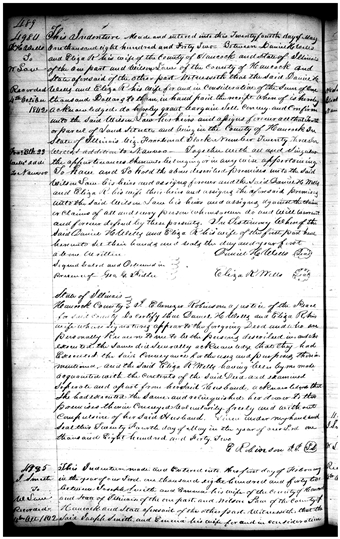 489
4984
D H Wells
To
W Law
Recorded
1842
This Indenture Made and entered into this Twenty fourth day of May
One thousand eight hundred and Forty Two Between Daniel H Wells
and Eliza R his wife of the County of Hancock and State of Illinois
of the one part and Wilson Law of the County of Hancock and
State aforesaid of the other part Witnesseth that the said Daniel H
Wells and Eliza R his wife for and in Consideration of the Sum of One
thousand Dollars to them in hand paid the receipt whereof is hereby
acknowledged do hereby grant bargain Sell Convey and Confirm
unto the said Wilson Law his heirs and assigns forever all that
or parcel of Land Situate and lying in the County of Hancock In
State of Illinois Viz Block Number Twenty
addition to Nauvoo Together with all and Singular
the appurtenances thereunto belonging or in any wise appertaining
To Have and To Hold the above described premises unto the said
Wilson Law his heirs and assigns forever and the Said Daniel H Wells
and Eliza R his wife their heirs and assigns the aforesaid premises
unto the said Wilson Law his heirs and assigns against the claim
or Claims of all and every person whomsoever do and Will Warrant
and forever defend by these presents In Testimony Whereof the
said Daniel H Wells and Eliza R his wife of the first part have
hereunto set their hands and seals the day and year first
above Written
Daniel H Wells Seal
Signed Sealed and Delivered in
presence of
Eliza R Wells Seal
State of Illinois
Hancock County Ebenezer Robinson a justice of the Peace
for said County do certify that Daniel H Wells and Eliza R his
wife whose signatures appear to the foregoing Deed and who are
personally Known to me to be the persons described in and who
Executed the Same did severally acknowledge that they had
Executed the Said Conveyance for the uses and purposes therein
mentioned, and the said Eliza R Wells having been by me made
acquainted with the Contents of the Said Deed and examined
Separate and apart from her said Husband acknowledged that
She had executed the Same and relinquished her dower to the
premises therein Conveyed voluntarily freely and without
Compulsion of her Said Husband. Given under my hand and
Seal this Twenty Fourth day of May in the year of our Lord One
thousand Eight hundred and Forty Two
E Robinson J.P. Seal
4985
J Smith
To
Recorded
1842
This Indenture made and Entered into the first day of February
in the year of our Lord one thousand eight hundred and forty two
between Joseph Smith and Emma his wife of the County of Hancock
and State of Illinois of the one part, and Wilson Law of the County of
Hancock and State aforesaid of the other part Witnesseth, that the
Said Joseph Smith, and Emma his wife for and in consideration